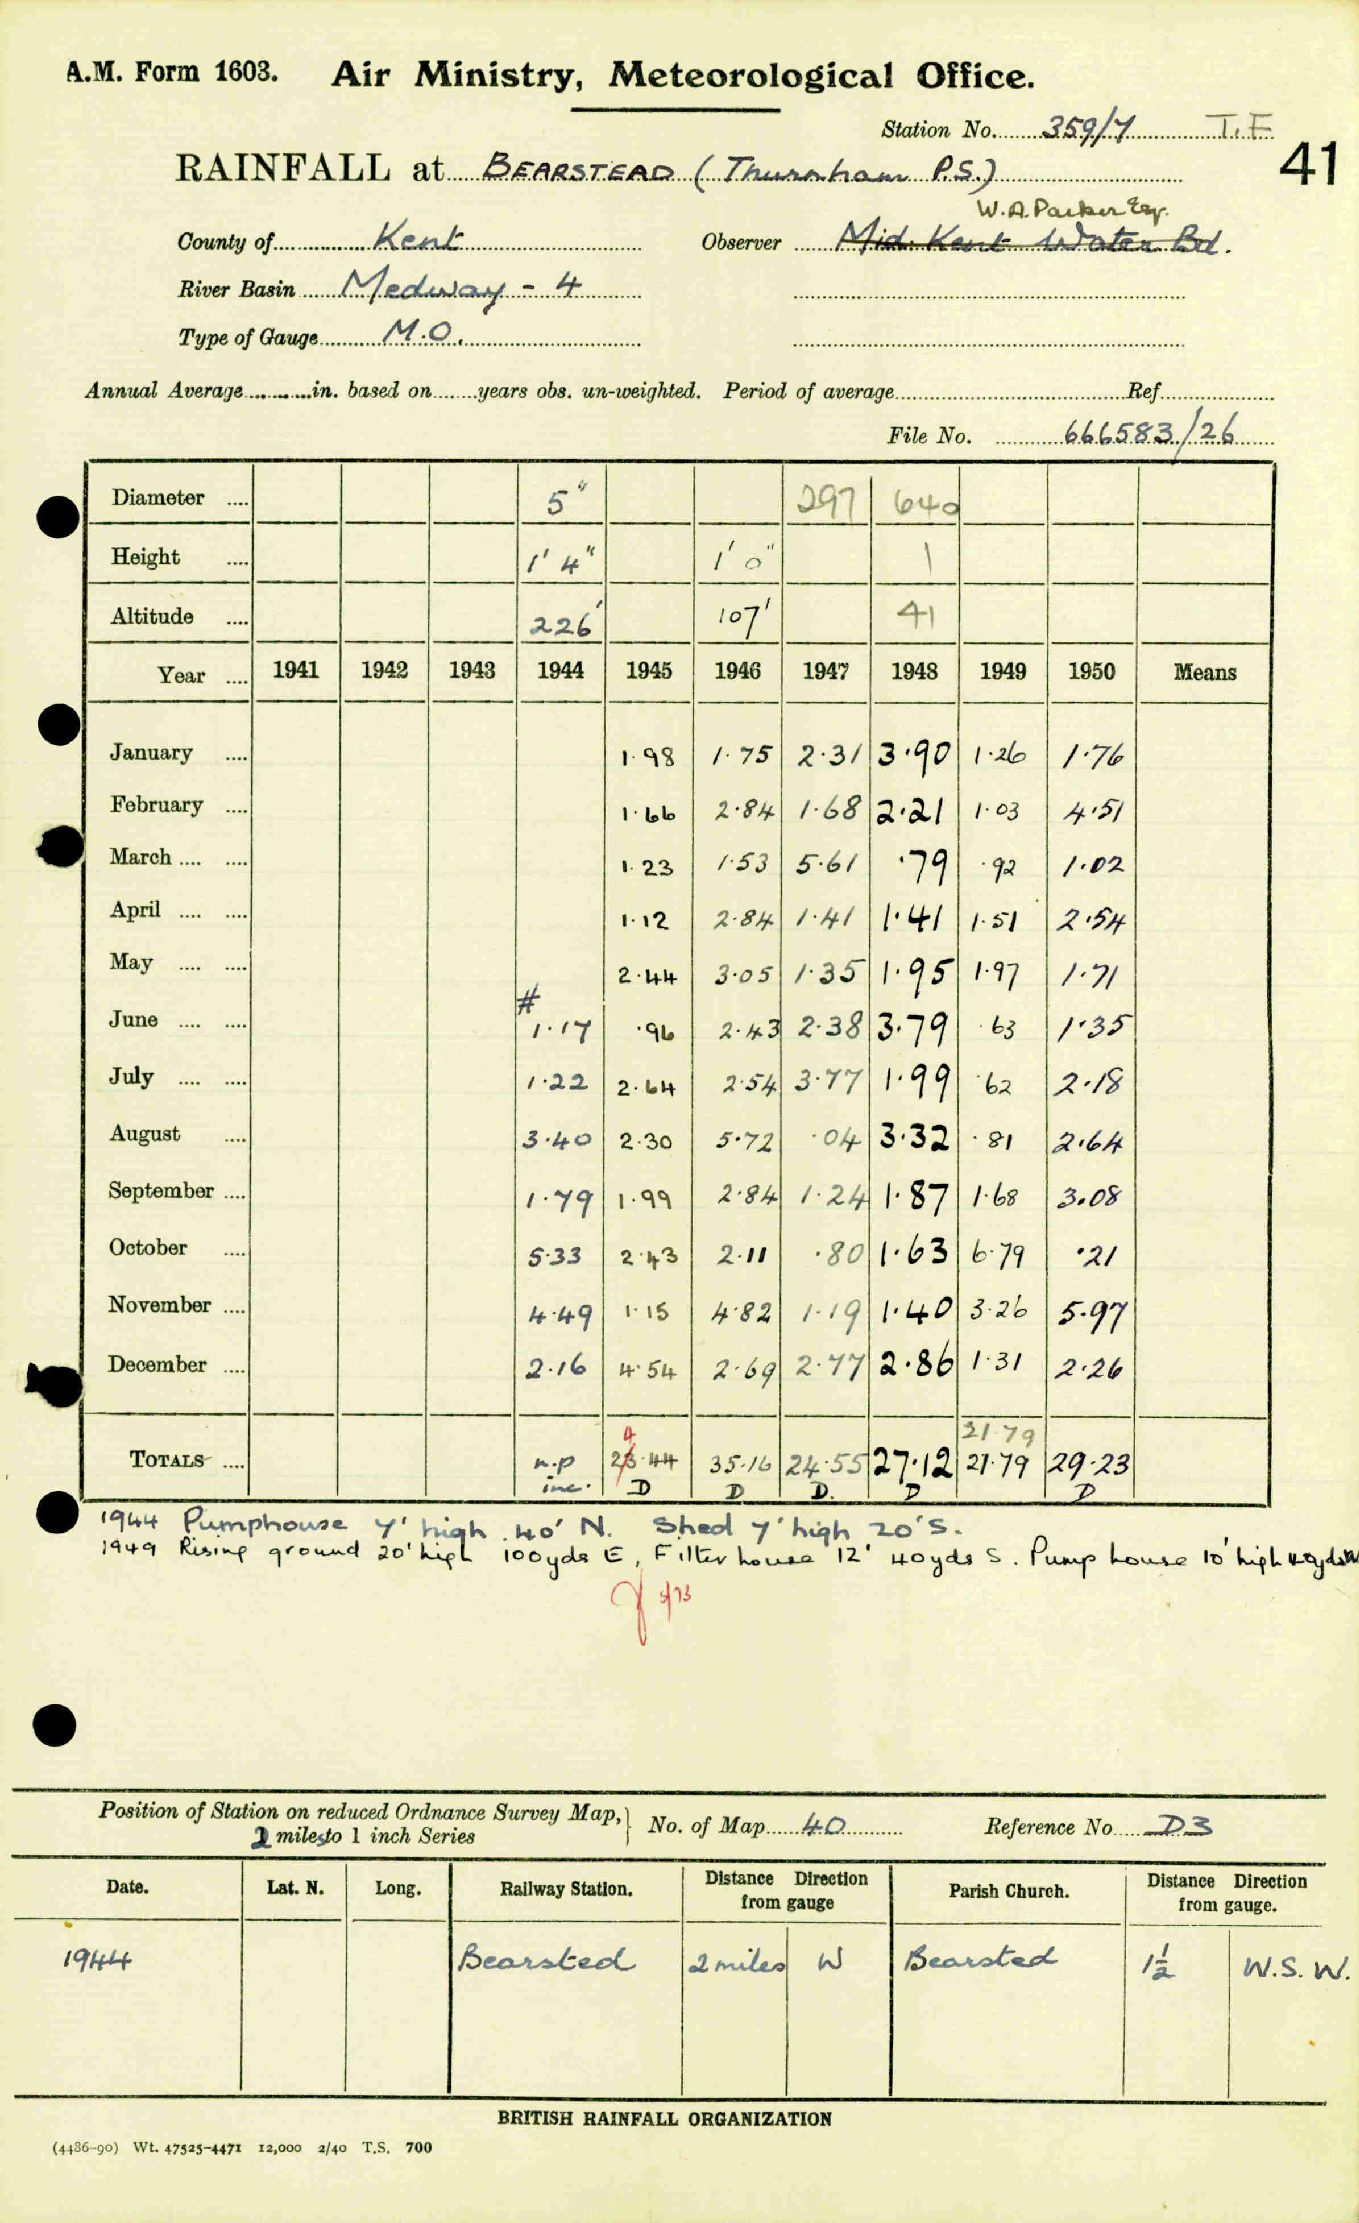 A.M. Form 1603. Air Ministry, Meteorological Office.
Station No. 359/7 T.F
41
RAINFALL at BEARSTEAD (Thurnham P.S.)
W.A. Parker Esq.
County of Kent Observer Mid. Kent Water Bd.
River Basin Medway - 4
Type of Gauge M.O.
Annual Average in. based on years obs. un-weighted. Period of average Ref
File No. 666583/26
Diameter 5" 297 640
Height 1' 4" 1' 0" 1
Altitude 226' 107' 41
Year 1941 1942 1943 1944 1945 1946 1947 1948 1949 1950 Means
January 1.98 1.75 2.31 3.90 1.26 1.76
February 1.66 2.84 1.68 2.21 1.03 4.51
March 1.23 1.53 5.61 .79 .92 1.02
April 1.12 2.84 1.41 1.41 1.51 2.54
May 2.44 3.05 1.35 1.95 1.97 1.71
#
June 1.17 .96 2.43 2.38 3.79 .63 1.35
July 1.22 2.64 2.54 3.77 1.99 .62 2.18
August 3.40 2.30 5.72 .04 3.32 .81 2.64
September 1.79 1.99 2.84 1.24 1.87 1.68 3.08
October 5.33 2.43 2.11 .80 1.63 6.79 .21
November 4.49 1.15 4.82 1.19 1.40 3.26 5.97
December 2.16 4.54 2.69 2.77 2.86 1.31 2.26
4 21.79
TOTALS n.p 23.44 35.16 24.55 27.12 21.79 29.23
inc. D D D. D D
1944 Pumphouse 7' high 40' N. Shed 7' high 20' S.
1949 Rising ground 20' high 100yds E, Filter house 12' 40yds S. Pump house 10' high 40yds W
5/73
Position of Station on reduced Ordnance Survey Map,
2 miles to 1 inch Series
No. of Map 40 Reference No D3
Date. Lat. N. Long. Railway Station. Distance Direction from gauge Parish Church. Distance Direction from gauge.
1944 Bearsted 2 miles W Bearsted 1½ W.S.W.
BRITISH RAINFALL ORGANIZATION
(4486-90) Wt. 47525-4471 12,000 2/40 T.S. 700